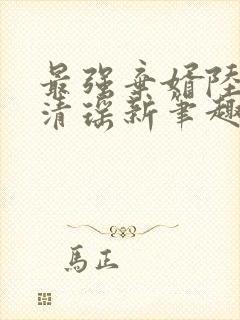 最强弃婿陆
清瑶新笔趣
馬正